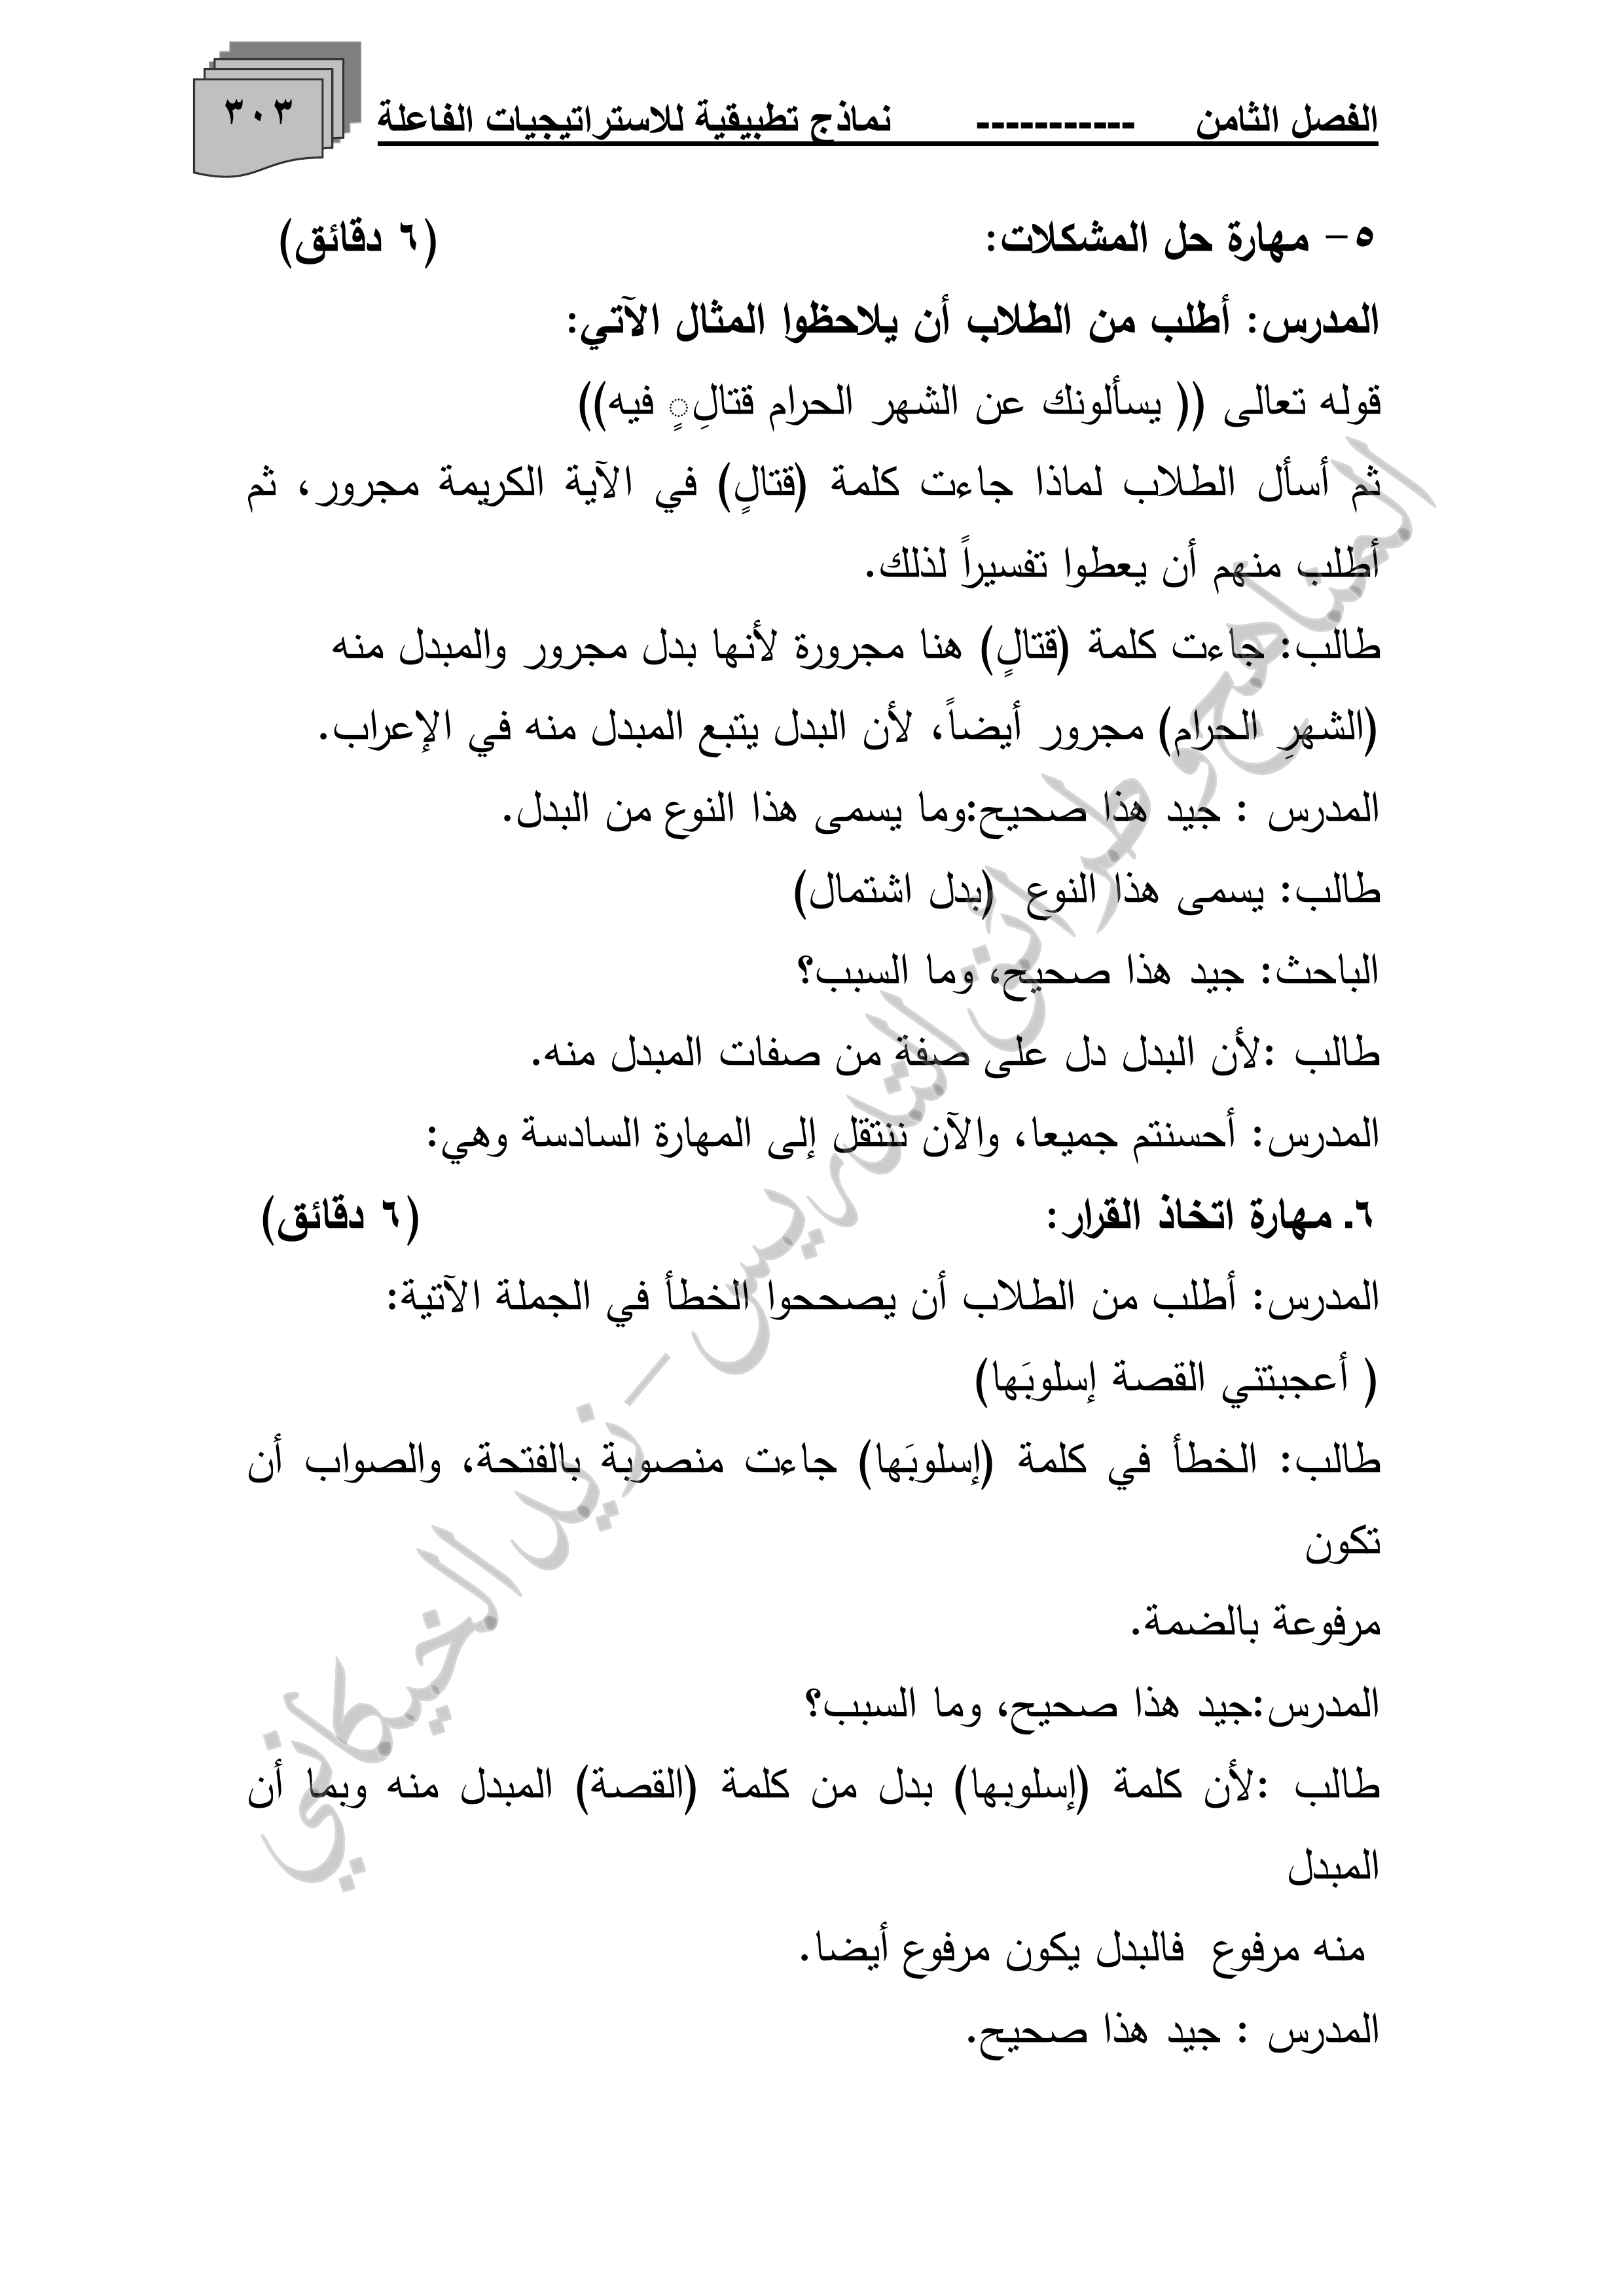 الفصل الثامن ----------- نماذج تطبيقية للاستراتيجيات الفاعلة ٣٠٣
٥- مهارة حل المشكلات: (٦ دقائق)
المدرس: أطلب من الطلاب أن يلاحظوا المثال الآتي:
قوله تعالى (( يسألونك عن الشهر الحرام قتالِ ٍ فيه))
ثم أسأل الطلاب لماذا جاءت كلمة (قتالٍ) في الآية الكريمة مجرور، ثم
أطلب منهم أن يعطوا تفسيراً لذلك.
طالب: جاءت كلمة (قتالٍ) هنا مجرورة لأنها بدل مجرور والمبدل منه
(الشهرِ الحرام) مجرور أيضاً، لأن البدل يتبع المبدل منه في الإعراب.
المدرس : جيد هذا صحيح:وما يسمى هذا النوع من البدل.
طالب: يسمى هذا النوع (بدل اشتمال)
الباحث: جيد هذا صحيح، وما السبب؟
طالب :لأن البدل دل على صفة من صفات المبدل منه.
المدرس: أحسنتم جميعا، والآن ننتقل إلى المهارة السادسة وهي:
٦. مهارة اتخاذ القرار: (٦ دقائق)
المدرس: أطلب من الطلاب أن يصححوا الخطأ في الجملة الآتية:
( أعجبتني القصة إسلوبَها)
طالب: الخطأ في كلمة (إسلوبَها) جاءت منصوبة بالفتحة، والصواب أن
تكون
مرفوعة بالضمة.
المدرس:جيد هذا صحيح، وما السبب؟
طالب :لأن كلمة (إسلوبها) بدل من كلمة (القصة) المبدل منه وبما أن
المبدل
منه مرفوع فالبدل يكون مرفوع أيضا.
المدرس : جيد هذا صحيح.
المناهج وطرائق التدريس - زيد الخيكاني